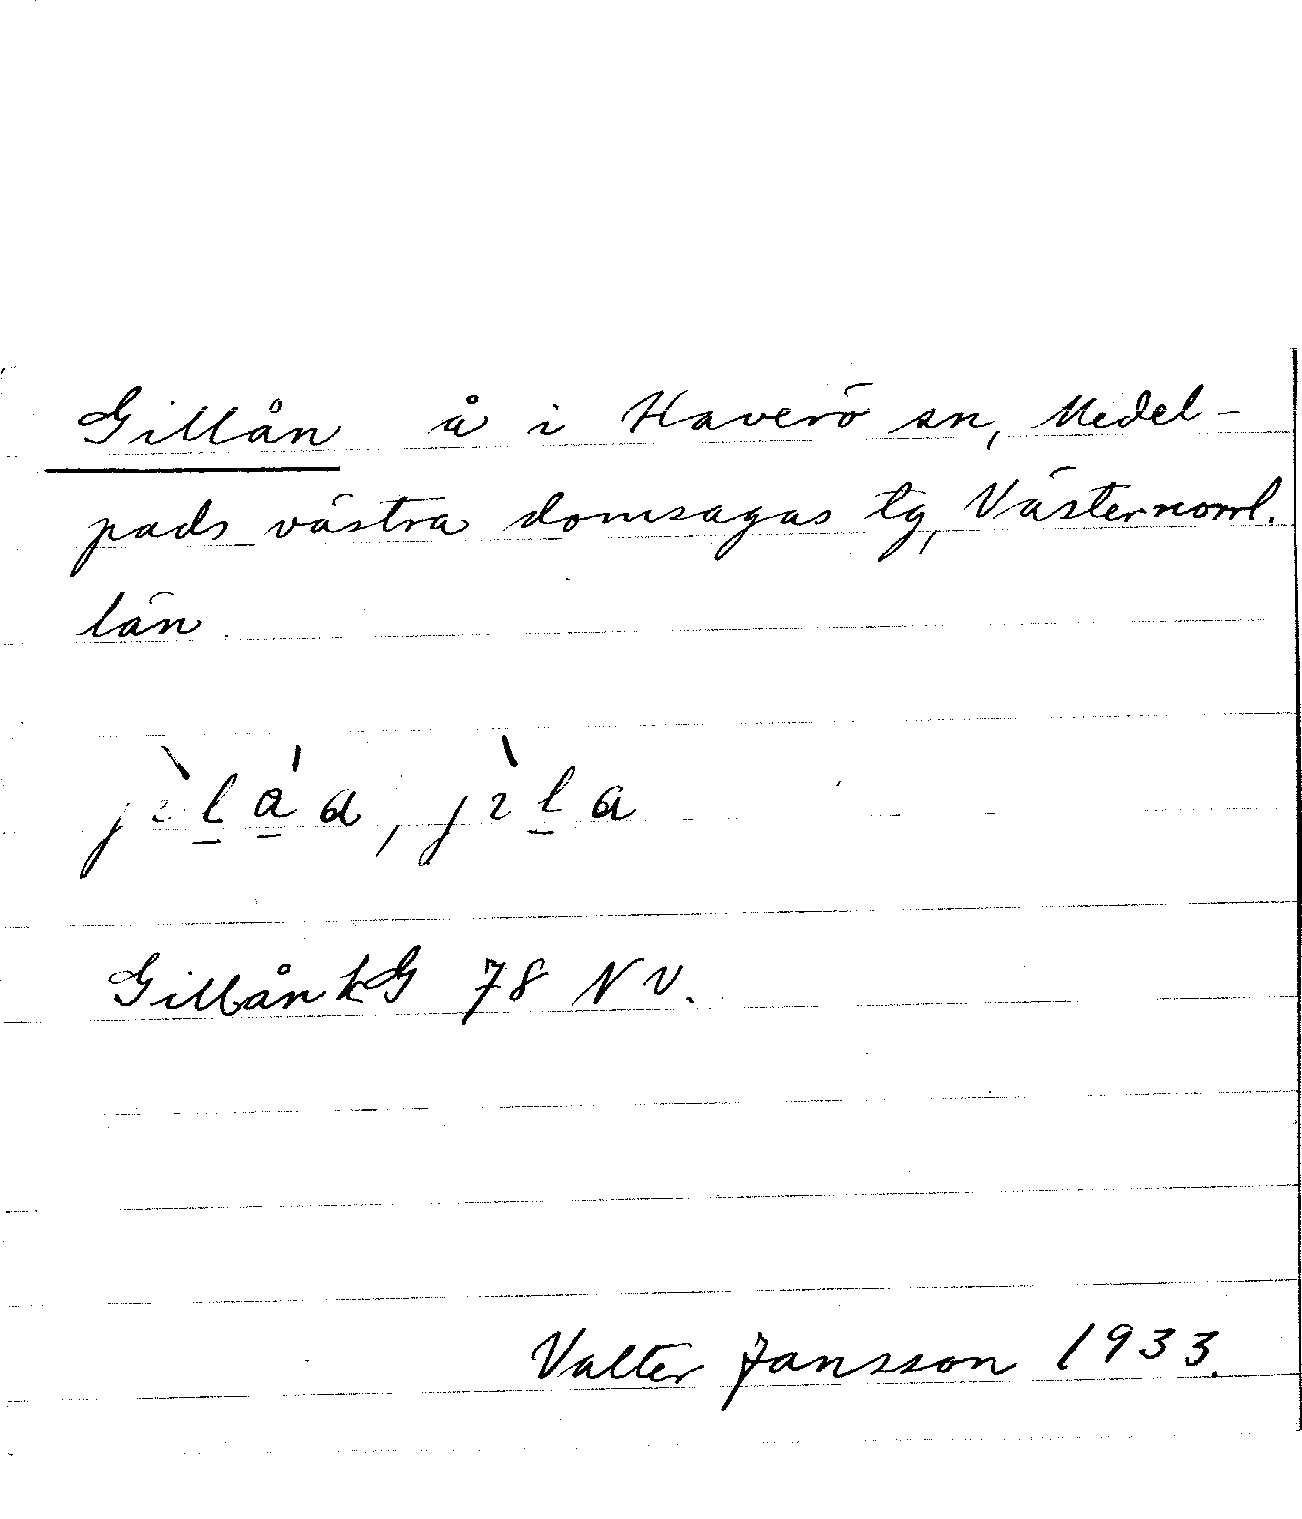 Gillån å i Haverö sn, Medel-
pads västra domsagas tg, Västernorrl.
län.
jìlá̱a, jìḻa
Gillån kG 78 NV.
Valter Jansson 1933.